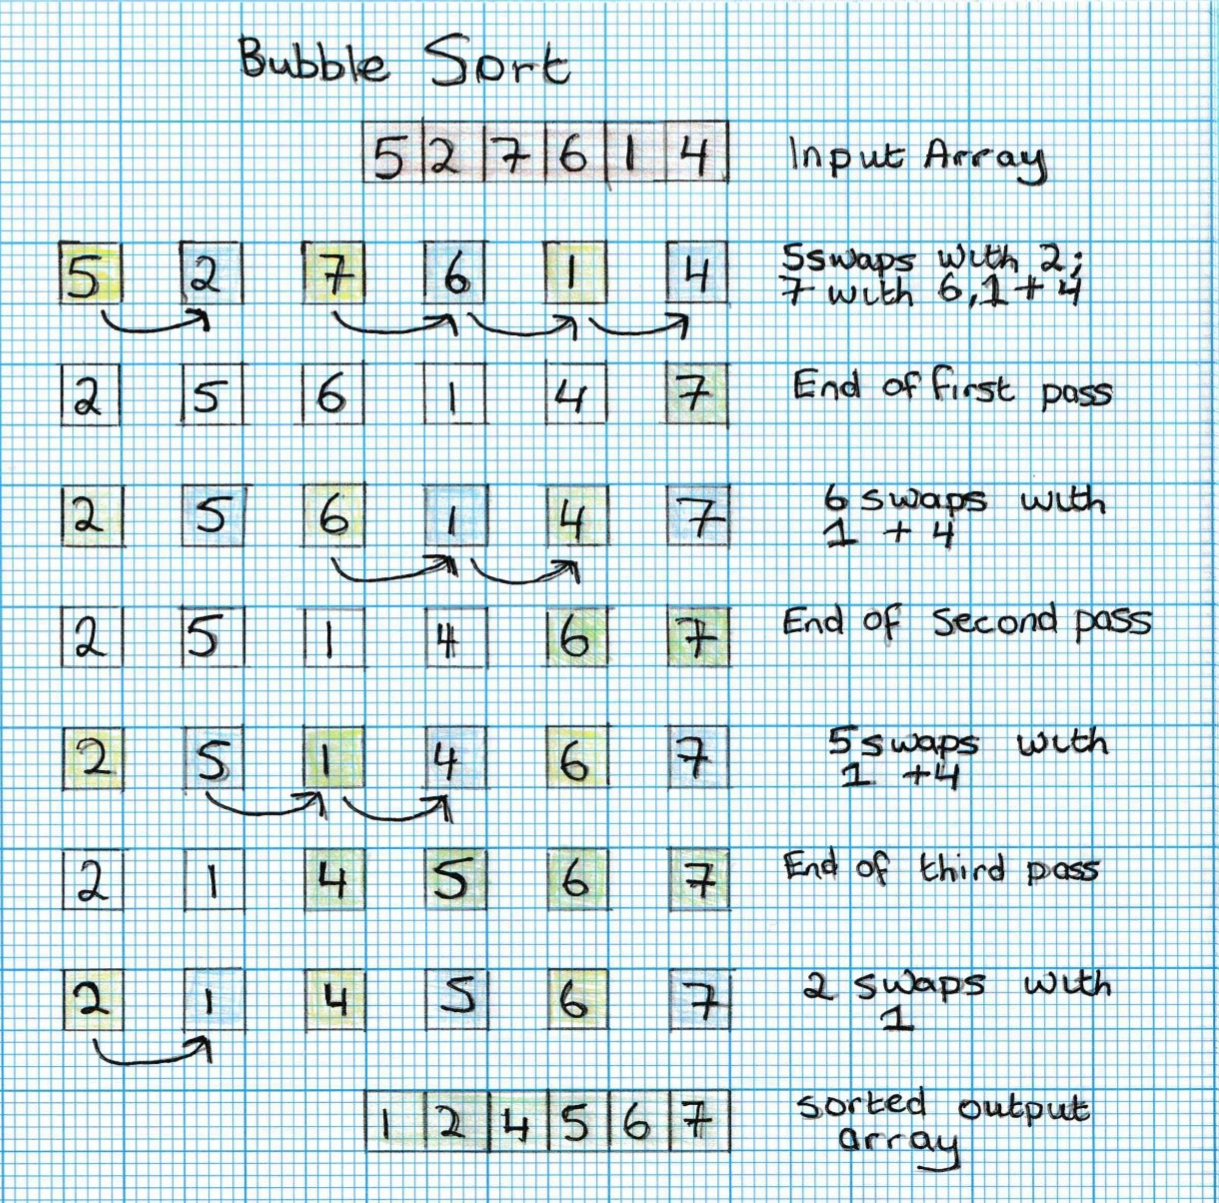 Bubble Sort
5 2 7 6 1 4 Input Array
5 2 7 6 1 4 5 swaps with 2;
7 with 6, 1 + 4
2 5 6 1 4 7 End of first pass
2 5 6 1 4 7 6 swaps with
1 + 4
2 5 1 4 6 7 End of second pass
2 5 1 4 6 7 5 swaps with
1 + 4
2 1 4 5 6 7 End of third pass
2 1 4 5 6 7 2 swaps with
1
1 2 4 5 6 7 sorted output
array